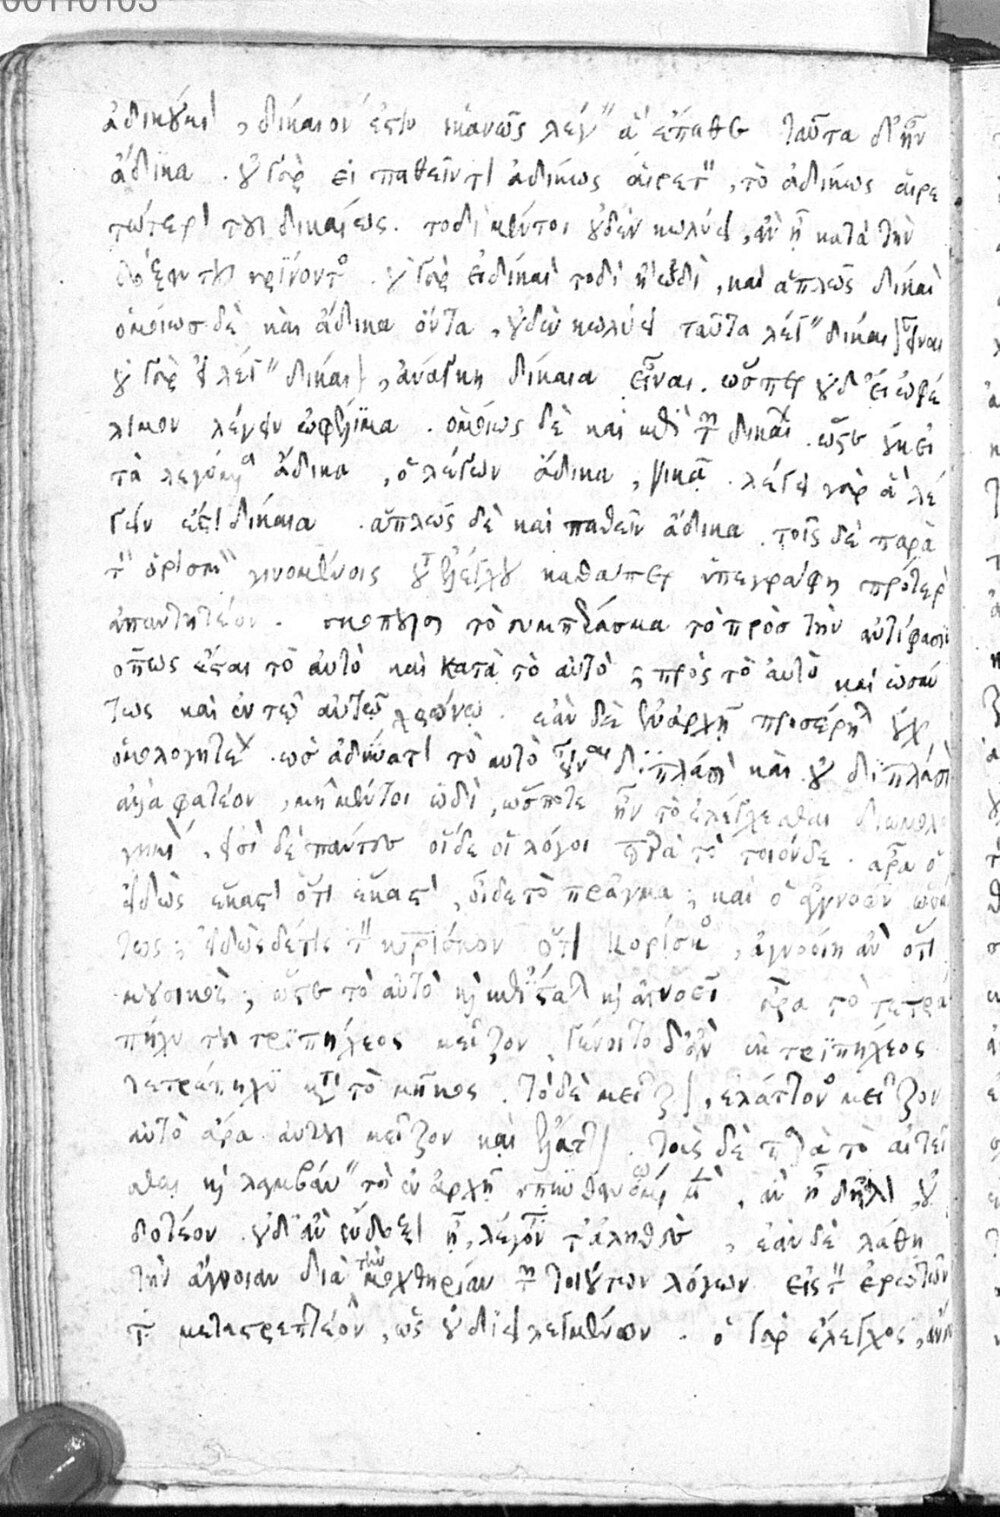 00110163
ἀδικοῦσι, δίκαιόν ἐστιν ἱκανῶς λέγειν ἃ ἔπαθε ταῦτα δ' ἦν
ἄδικα. οὐ γὰρ εἰ παθεῖν τι ἀδίκως αἱρετόν, τὸ ἀδίκως αἱρε
τώτερον τοῦ δικαίως. τοδὶ μέντοι οὐδὲν κωλύει, ἂν ᾖ κατὰ τὴν
δόξαν τοῦ κρίνοντος. οὐ γὰρ εἰ δίκαιον τοδὶ ἢ ὡδὶ, καὶ ἁπλῶς δίκαιον
ὁμοίως δὲ καὶ ἄδικα ὄντα, οὐδὲν κωλύει ταῦτα λέγειν δίκαιον εἶναι
οὐ γὰρ εἰ λέγειν δίκαιον, ἀνάγκη δίκαια εἶναι. ὥσπερ οὐδ' εἰ ὠφέ
λιμον λέγειν ὠφέλιμα. ὁμοίως δὲ καὶ ἐπὶ τῶν δικαίων. ὥστε οὐκ εἰ
τὰ λεγόμενα ἄδικα, ὁ λέγων ἄδικα, νικᾷ. λέγει γὰρ ἃ λέ
γειν ἐστὶ δίκαια. ἁπλῶς δὲ καὶ παθεῖν ἄδικα. τοῖς δὲ παρὰ
τὸν ὁρισμὸν γινομένοις τοῦ ἐλέγχου καθάπερ ὑπεγράφη πρότερον
ἀπαντητέον. σκοποῦσι τὸ συμπέρασμα τὸ πρὸς τὴν ἀντίφασιν
ὅπως ἔσται τὸ αὐτὸ καὶ κατὰ τὸ αὐτὸ καὶ πρὸς τὸ αὐτὸ καὶ ὡσαύ
τως καὶ ἐν τῷ αὐτῷ χρόνῳ. ἐὰν δὲ ἐν ἀρχῇ προσέρηται οὐχ
ὁμολογητέον. ὡς ἀδύνατον τὸ αὐτὸ εἶναι διπλάσιον καὶ οὐ διπλάσιον
ἀλλὰ φατέον, μὴ μέντοι ὡδὶ, ὥς ποτε ἦν τὸ ἐλέγχεσθαι διωμολο
εἰσὶ δὲ πάντες οἵδε οἱ λόγοι παρὰ τὸ τοιόνδε. ἆρα ὁ
εἰδὼς ἕκαστον ὅτι ἕκαστον, οἶδε τὸ πρᾶγμα; καὶ ὁ ἀγνοῶν ὡσαύ
τως; εἰδὼς δέ τις τὸν κορίσκον ὅτι κορίσκος, ἀγνοοίη ἂν ὅτι
μουσικός; ὥστε τὸ αὐτὸ καὶ ἐπίσταται καὶ ἀγνοεῖ ἆρα τὸ τετρά
πηχυ τοῦ τριπήχεος μεῖζον, γένοιτο δ' ἂν ἐκ τριπήχεος
τετράπηχυ κατὰ τὸ μῆκος. τὸ δὲ μεῖζον, ἐλάττονος μεῖζον
αὐτὸ ἄρα αὐτοῦ μεῖζον καὶ ἔλαττον. τοῖς δὲ παρὰ τὸ αἰτεῖ
σθαι καὶ λαμβάνειν τὸ ἐν ἀρχῇ πυνθανομένῳ μὲν, ἂν ᾖ δῆλον, οὐ
δοτέον. οὐδ' ἂν ἔνδοξον ᾖ, λέγοντα τἀληθές, ἐὰν δὲ λάθῃ
τὴν ἄγνοιαν διὰ τὴν μοχθηρίαν τῶν τοιούτων λόγων εἰς τὸν ἐρωτῶν
τα μεταστρεπτέον, ὡς οὐ διειλεγμένον. ὁ γὰρ ἔλεγχος, ἄνευ